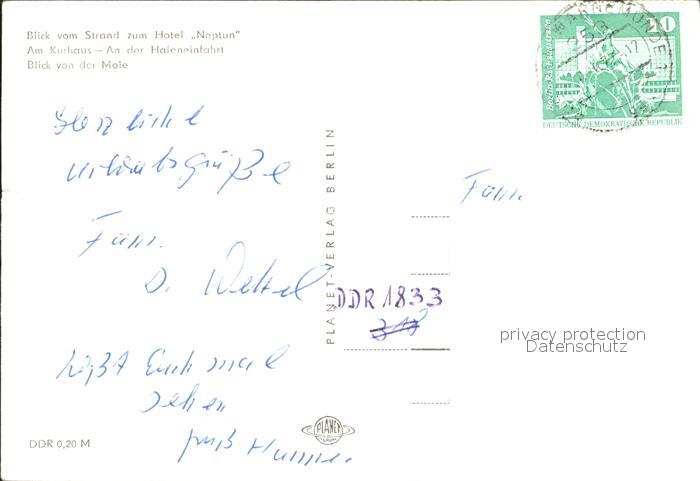 Blick vom Strand zum Hotel „Neptun"
Am Kurhaus — An der Hafeneinfahrt
Blick von der Mole
Herzliche
Urlaubsgrüße
Fam.
D. Wetzel
Laßt Euch mal
sehen
DDR 0,20 M
PLANET-VERLAG BERLIN
PLANET
WARNEMÜNDE
253
20
DEUTSCHE DEMOKRATISCHE REPUBLIK
Fam.
DDR 1833
privacy protection
Datenschutz